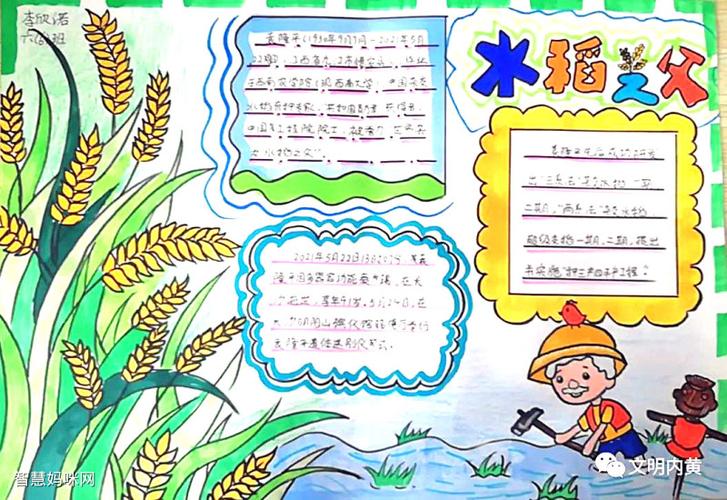 李欣诺
六(8)班
水稻之父
袁隆平(1930年9月7月-2021年5月
22日),江西省九江市德安县人,毕业
于西南农学院(现西南大学),中国杂交
水稻育种专家,共和国勋章获得者,
中国工程院院士,被誉为
袁隆平先后成功研发
出"三系法"杂交水稻、
"两系法"杂交水稻、
超级杂稻一期、二期,提出
并实施"种三产四丰产工程"
2021年5月22日13时07分,袁
隆平因多器官功能衰竭,在长
沙逝世,享年91岁。5月24日,在
明阳山殡仪馆铭德厅举行
袁隆平遗体送别仪式。
智慧妈咪网
文明内黄